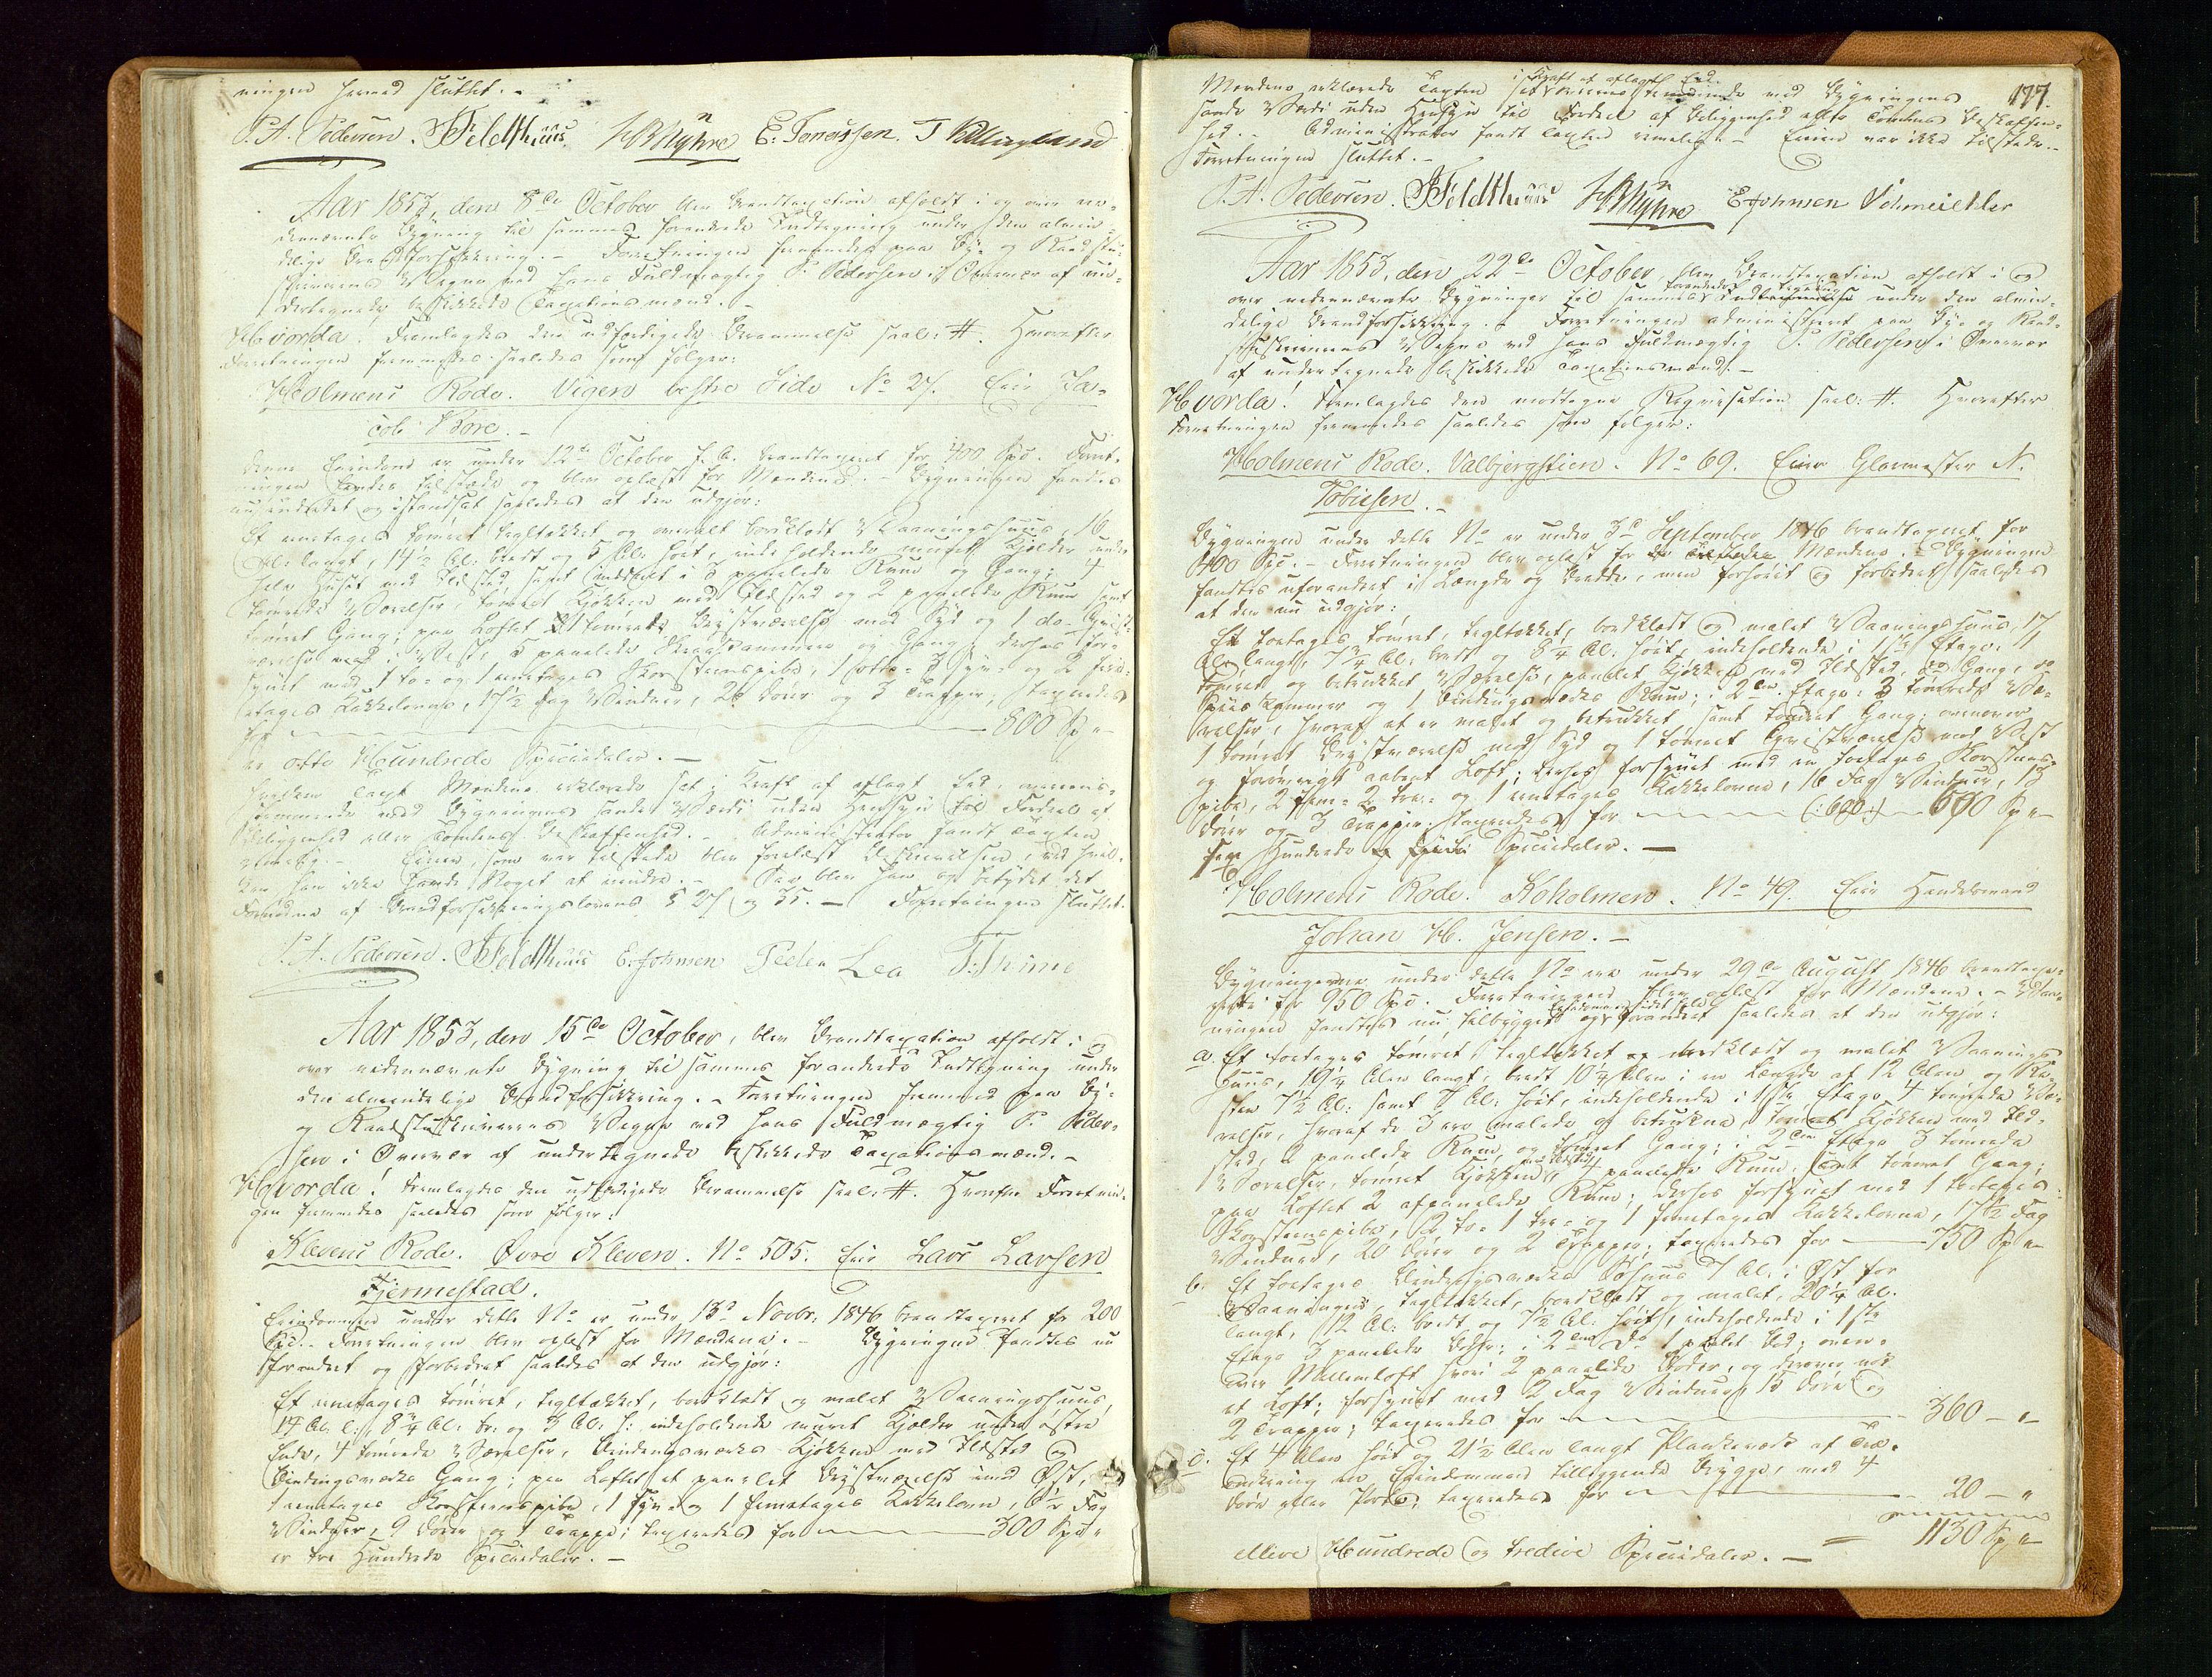 ningen hermed sluttet. -
P. A. Pedersen. B Feldthuus HB Myhre E. Tønessen. T Wællingland
Aar 1853, den 8de October blev Brandtaxation afholdt i og over ne-
dennævnte Bygning til sammes forandrede Indtegning under den almin-
delige Brandforsikkring. - Forretningen fremmedes paa By- og Raadstu-
skriverens Vegne ved hans Fuldmægtig P. Pedersen i Overvær af un-
dertegnede beskikkede Taxationsmænd. -
Hvorda! Fremlagdes den udfærdigede Berammelse saal: #. Hvorefter
Forretningen fremmedes saaledes som følger:
Holmens Rode. Vigens vestre Side No 27. Eier Ja-
cob Bore. -
Denne Eiendom er under 12te October f. A. brandtaxeret for 400 Spd. Forret-
ningen fandtes tilstæde og blev oplæst for Mændene. - Bygningen fandtes
nu indredet og istandsat saaledes at den udgjør:
Et eenetages tømret tegltækket og overalt bordklædt Vaaningshuus, 16
Al: langt, 14½ Al: bredt og 5 Al: høit, indeholdende muret Kjelder under
hele Huset med Ildsted samt inddeelt i 3 panelede Rum og Gang; 4
tømrede Værelser, tømret Kjøkken med Ildsted og 2 panelede Rum samt
tømret Gang; paa Loftet 1 tømret Qvistværelse mod Syd og 1 do Qvist-
værelse mod Vest, 5 panelede Skraakammere og Gang, derhos for-
synet med 1 to- og 1 eenetages Skorsteenspibe, 1 otte- 3 syv- og 2 fire-
etages Kakkelovne, 17½ Fag Vinduer, 26 Døre og 3 Trapper, taxeredes
for 800 Sp "-
er otte Hundrede Speciedaler. -
Hvilken Taxt Mændene erklærede sat i Kraft af aflagt Eed overeens-
stemmende med Bygningens sande Værdi uden Hensyn til Fordeel af
Beliggenhed eller Tomtens Beskaffenhed. - Administrator fandt Taxten
rimelig. - Eieren, som var tilstede blev forelæst Beskrivelsen, ved hvil-
ken han ikke havde Noget at erindre. - Saa blev han og betydet det
Fornødne af Brandforsikkringslovens § 27 og 35. - Forretningen sluttet.
P. A. Pedersen. B Feldthuus E. Johnsen Peder Lea T. Thime
Aar 1853, den 15de October, blev Brandtaxation afholdt i og
over nedennævnte Bygning til sammes forandrede Indtegning under
den almindelige Brandforsikkring. - Forretningen fremmed paa By-
og Raadstuskriverens Vegne ved hans Fuldmægtig P. Peder-
sen i Overvær af undertegnede beskikkede Taxationsmænd. -
Hvorda! Fremlagdes den udfærdigede Berammelse saal: #. Hvorefter Forretnin-
gen fremmedes saaledes som følger:
Klevens Rode. Øvre Kleven. No 505. Eier Lars Larsen
Tjermestad.
Eiendommen under dette No er under 13de Novbr. 1846 brandtaxeret for 200
Spd. - Forretningen blev oplæst for Mændene. - Bygningen fandtes nu
forandret og forbedret saaledes at den udgjør:
Et eenetages tømret, tegltækket, bordklædt og malet Vaaningshuus,
14 Al. l:, 8¾ Al. br. og 3 Al: h: indeholdende muret Kjelder under østre
Ende, 4 tømrede Værelser, Bindingsværks Kjøkken med Ildsted og
Bindingsværks Gang; paa Loftet et panelet Qvistværelse mod Øst,
1 eenetages Skorsteenspibe, 1 syv- og 1 femetages Kakkelovn, 8½ Fag
Vinduer, 9 Døre og 1 Trappe; taxeredes for 300 Spd "
er tre Hundrede Speciedaler. -
177.
i Kraft af aflagt Eed
Mændene erklærede Taxten sat overeensstemmende med Bygningens
sande Værdi uden Hensyn til Fordeel af Beliggenhed eller Tomtens Beskaffen-
hed. - Administrator fandt Taxten rimelig. - Eieren var ikke tilstede. -
Forretningen sluttet. -
P. A. Pedersen. B Feldthuus HB Myhre E Johnsen Schmeichler
Aar 1853, den 22de October, blev Brandtaxation afholdt i og
over nedennævnte Bygninger til sammes forandrede Indtegning under den almin-
delige Brandforsikkring. - Forretningen administreret paa By- og Raad-
stueskriverens Vegne ved hans Fuldmægtig P. Pedersen i Overvær
af undertegnede beskikkede Taxationsmænd. -
Hvorda! Fremlagdes den modtagne Reqvisition saal: #. Hvorefter
Forretningen fremmedes saaledes som følger:
Holmens Rode. Valbjergstien. No 69. Eier Glarmester N.
Tobiesen. -
Bygningen under dette No er under 3d September 1846 brandtaxeret for
400 Spd. - Forretningen blev oplæst for Mændene. - Bygningen
fandtes uforandret i Længde og Bredde, men forhøiet og forbedret saaledes
at den nu udgjør:
Et toetages tømret, tegltækket, bordklædt og malet Vaaningshuus, 17
Al: langt, 7¾ Al: bredt og 8¼ Al: høit, indeholdende i 1ste Etage: 1
tømret og betrukket Værelse, panelet Kjøkken med Ildsted, do Gang, do
Spiiskammer og 1 Bindingsværks Rum; i 2den Etage: 3 tømrede Væ-
relser, hvoraf et er malet og betrukket, samt tømret Gang; ovenover
1 tømret Qvistværelse mod Syd og 1 tømret Qvistværelse mod Vest
og forøvrigt aabent Loft; derhos forsynet med en toetages Skorsteens-
pibe, 2 fem- 2 tre- og 1 eenetages Kakkelovne, 16 Fag Vinduer, 13
Døre og 3 Trapper; taxeredes for (: 600 :) 600 Sp "-
sex Hundrede Speciedaler. -
Holmens Rode. Koholmen. No 49. Eier Handelsmand
Johan H. Jensen. -
Bygningerne under dette No ere under 29de August 1846 brandtaxe-
rede for 950 Spd. Forretningen blev oplæst for Mændene. - Vaa-
ningen fandtes nu tilbygget og forandret saaledes at den udgjør:
a. Et toetages tømret, tegltækket og bordklædt og malet Vaanings-
huus, 19¼ Alen langt, bredt 10¼ Alen i en Længde af 12 Alen og Re-
sten 7½ Al: samt 7 Al: høit, indeholdende i 1ste Etage 4 tømrede Væ-
relser, hvoraf de 3 ere malede og betrukne, tømret Kjøkken med Ild-
sted, 2 panelede Rum og tømret Gang; i 2den Etage 3 tømrede
Værelser, tømret Kjøkken med Ildsted, 4 panelede Rum, samt tømret Gang;
paa Loftet 2 afpanelede Rum; derhos forsynet med 1 toetages
Skorsteenspibe, 2 to- 1 tre- og 1 femetages Kakkelovne, 17½ Fag
Vinduer, 20 Døre og 2 Trapper; taxeredes for 750 Sp "-
b. Et toetages Bindingsværks Søhuus 7 Al: i Øst for
Vaaningen, tegltækket, bordklædt og malet, 20¼ Al.
langt, 12 Al: bredt og 7½ Al: høit, indeholdende i 1ste
Etage 3 panelede Boder; i 2den Do 1 panelet Bod; oven-
over Mellemloft hvori 2 panelede Boder, og derover nok
et Loft; forsynet med 2 Fag Vinduer, 15 Døre og
2 Trapper; taxeredes for 360 - "-
c. Et 4 Alen høit og 21½ Alen langt Plankeværk af Træ-
omkring en Eiendommen tilliggende Brygge, med 4
Døre eller Porte; taxeredes for 20 - "
= 1130 Sp "-
elleve Hundrede og tredive Speciedaler. -